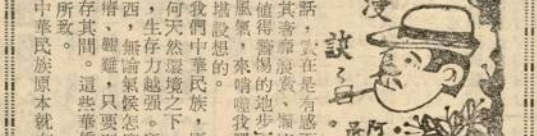 漫談
阿
話，實在是有感
其奢靡浪費、懶
值得警惕的地步
風氣，來啃噬我
堪設想的。
我們中華民族，
何天然環境之下
，生存力越强。
西，無論氣候怎
瘠、艱難，只要
存其間。這些華僑
所致。
中華民族原本就